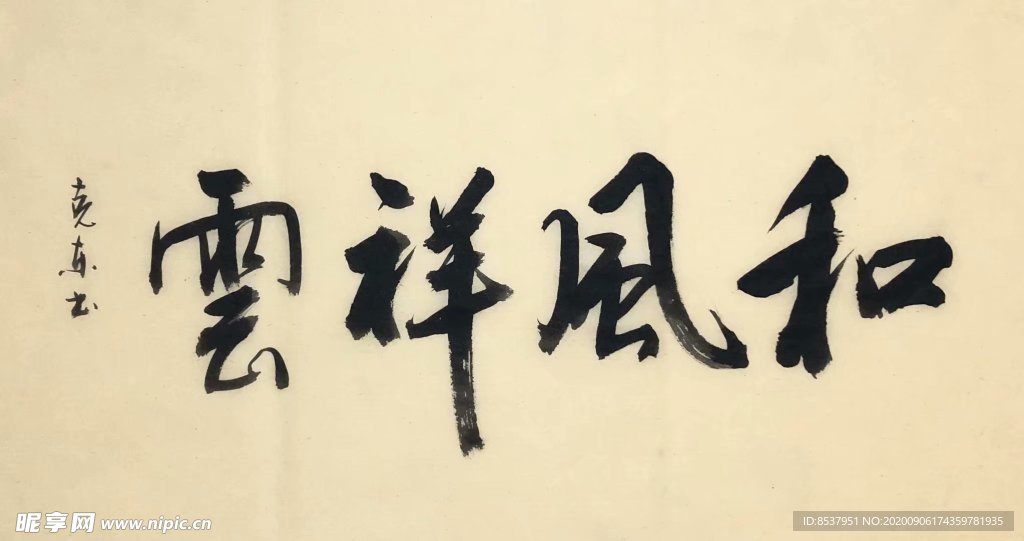 和風祥雲
克东书
昵享网 www.nipic.cn
ID:8537951 NO:20200906174359781935